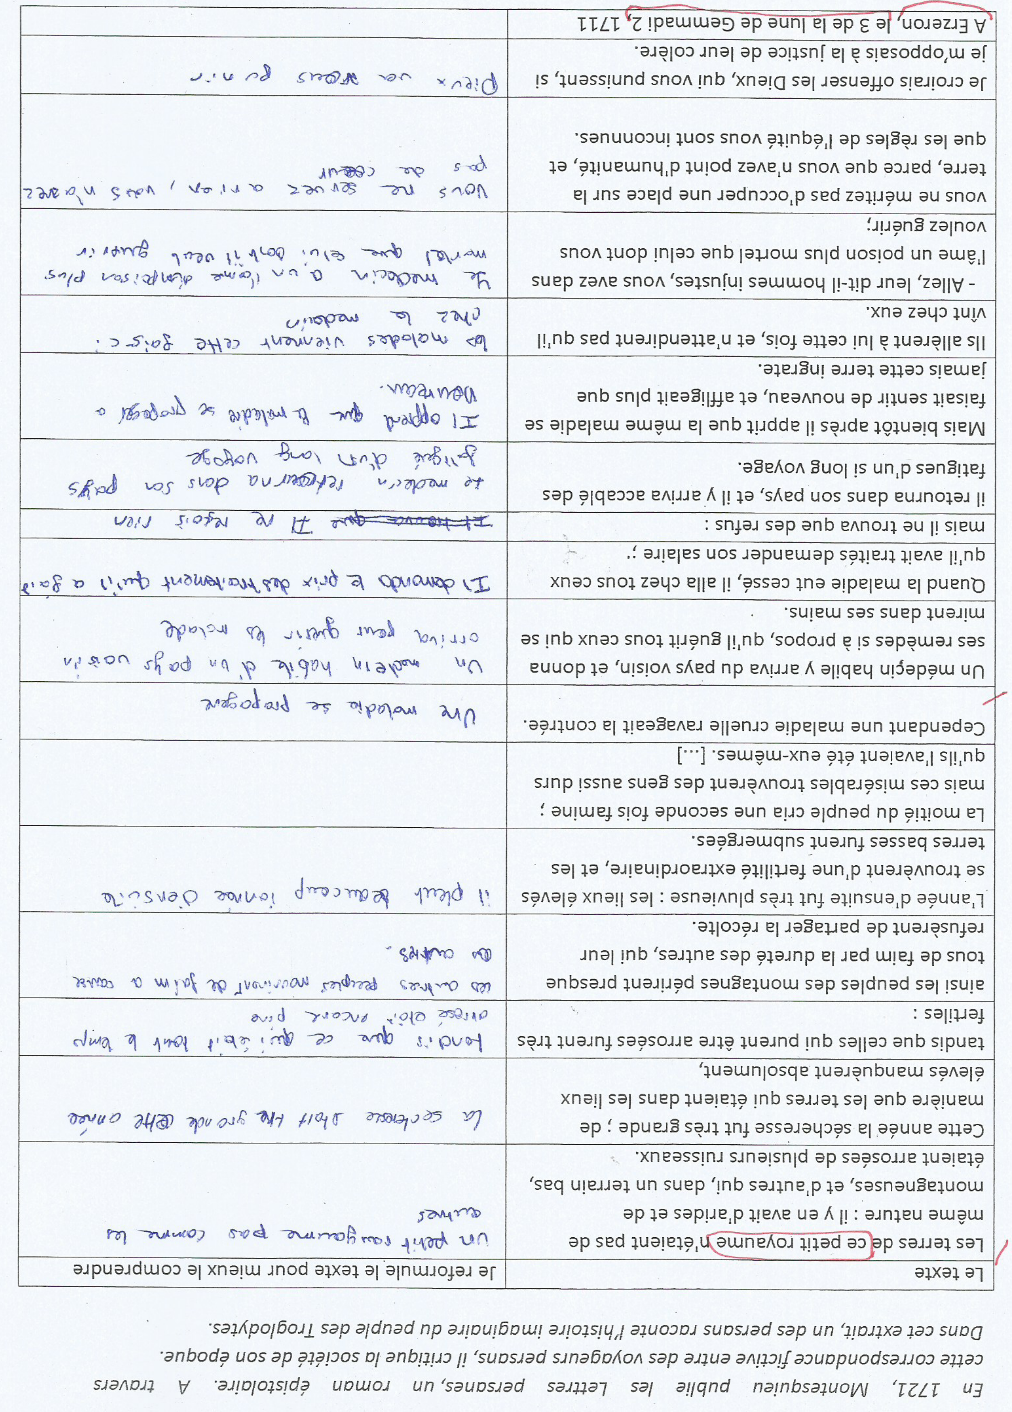 En 1721, Montesquieu publie les Lettres persanes, un roman épistolaire. A travers
cette correspondance fictive entre des voyageurs persans, il critique la société de son époque.
Dans cet extrait, un des persans raconte l'histoire imaginaire du peuple des Troglodytes.
Le texte
Je reformule le texte pour mieux le comprendre
Les terres de ce petit royaume n'étaient pas de
même nature : il y en avait d'arides et de
montagneuses, et d'autres qui, dans un terrain bas,
étaient arrosées de plusieurs ruisseaux.
un petit royaume pas comme les
autres
Cette année la sécheresse fut très grande ; de
manière que les terres qui étaient dans les lieux
élevés manquèrent absolument,
La secheresse était très grande cette année
tandis que celles qui purent être arrosées furent très
fertiles :
tandis que ce qui était tout le temp
arrosé était encore pire
ainsi les peuples des montagnes périrent presque
tous de faim par la dureté des autres, qui leur
refusèrent de partager la récolte.
Les autres peuples mourirent de faim a cause
des autres.
L'année d'ensuite fut très pluvieuse : les lieux élevés
se trouvèrent d'une fertilité extraordinaire, et les
terres basses furent submergées.
il pleut beaucoup l'année d'ensuite
La moitié du peuple cria une seconde fois famine ;
mais ces misérables trouvèrent des gens aussi durs
qu'ils l'avaient été eux-mêmes. [...]
Cependant une maladie cruelle ravageait la contrée.
Une maladie se propagere
Un médecin habile y arriva du pays voisin, et donna
ses remèdes si à propos, qu'il guérit tous ceux qui se
mirent dans ses mains.
Un medein habile d'un pays voisin
arriva pour guérir les malade
Quand la maladie eut cessé, il alla chez tous ceux
qu'il avait traités demander son salaire ;
Il demanda le prix des traitement qu'il a fait
mais il ne trouva que des refus :
Il ne reçois rien
il retourna dans son pays, et il y arriva accablé des
fatigues d'un si long voyage.
Le medecin retourna dans son pays
fatigué d'un long voyage
Mais bientôt après il apprit que la même maladie se
faisait sentir de nouveau, et affligeait plus que
jamais cette terre ingrate.
Il apprend que la maladie se propage a
nouveau.
Ils allèrent à lui cette fois, et n'attendirent pas qu'il
vînt chez eux.
les malades viennent cette fois-ci
chez le medecin
- Allez, leur dit-il hommes injustes, vous avez dans
l'âme un poison plus mortel que celui dont vous
voulez guérir;
Le medecin a un l'ame d'enpoison plus
mortel que celui dont il veut guerir
vous ne méritez pas d'occuper une place sur la
terre, parce que vous n'avez point d'humanité, et
que les règles de l'équité vous sont inconnues.
Vous ne servez a rien, vous n'avez
pas de cœur
Je croirais offenser les Dieux, qui vous punissent, si
je m'opposais à la justice de leur colère.
Dieux va vous punir
A Erzeron, le 3 de la lune de Gemmadi 2, 1711